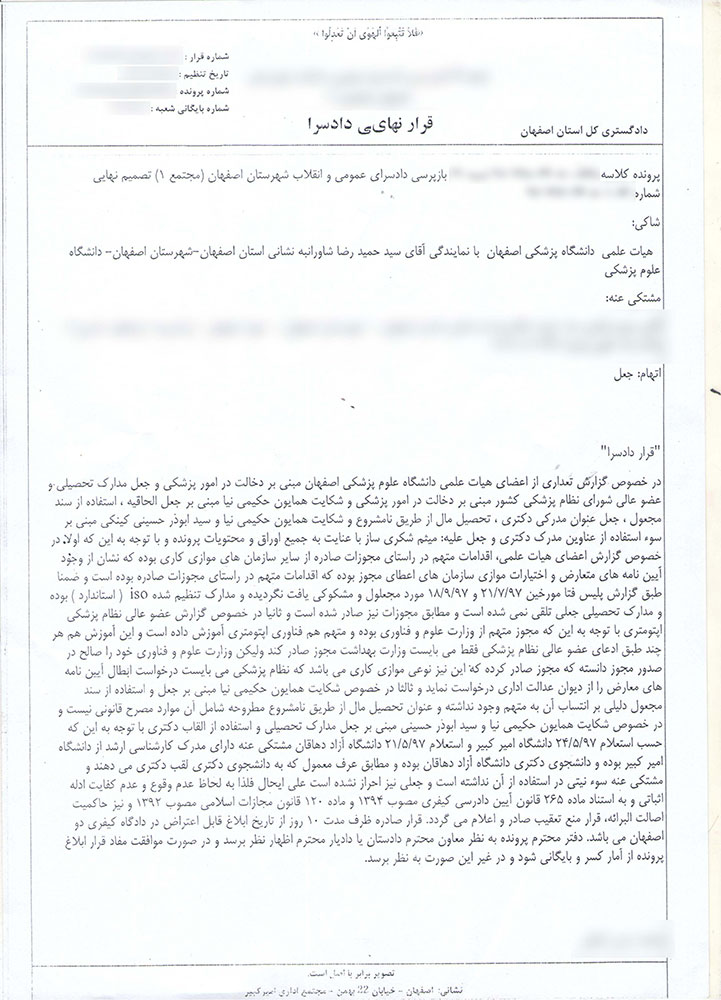 «فَلاَ تَتَّبِعوُا اَلهَوَی اَنْ تَعدِلُوا»
شماره قرار :
تاریخ تنظیم :
شماره پرونده
شماره بایگانی شعبه :
قرار نهای‌ی دادسرا
دادگستری کل استان اصفهان
پرونده کلاسه بازپرسی دادسرای عمومی و انقلاب شهرستان اصفهان (مجتمع ۱) تصمیم نهایی
شماره
شاکی:
هیات علمی دانشگاه پزشکی اصفهان با نمایندگی آقای سید حمید رضا شاورانبه نشانی استان اصفهان–شهرستان اصفهان– دانشگاه
علوم پزشکی
مشتکی عنه:
اتهام: جعل
"قرار دادسرا"
در خصوص گزارش تعداری از اعضای هیات علمی دانشگاه علوم پزشکی اصفهان مبنی بر دخالت در امور پزشکی و جعل مدارک تحصیلی و
عضو عالی شورای نظام پزشکی کشور مبنی بر دخالت در امور پزشکی و شکایت همایون حکیمی نیا مبنی بر جعل الحاقیه ، استفاده از سند
مجعول ، جعل عنوان مدرکی دکتری ، تحصیل مال از طریق نامشروع و شکایت همایون حکیمی نیا و سید ابوذر حسینی کینکی مبنی بر
سوء استفاده از عناوین مدرک دکتری و جعل علیه: میثم شکری ساز با عنایت به جمیع اوراق و محتویات پرونده و با توجه به این که اولا، در
خصوص گزارش اعضای هیات علمی، اقدامات متهم در راستای مجوزات صادره از سایر سازمان های موازی کاری بوده که نشان از وجود
آیین نامه های متعارض و اختیارات موازی سازمان های اعطای مجوز بوده که اقدامات متهم در راستای مجوزات صادره بوده است و ضمنا
طبق گزارش پلیس فتا مورخین ۲۱/۷/۹۷ و ۱۸/۹/۹۷ مورد مجعلول و مشکوکی یافت نگردیده و مدارک تنظیم شده iso ( استاندارد ) بوده
و مدارک تحصیلی جعلی تلقی نمی شده است و مطابق مجوزات نیز صادر شده است و ثانیا در خصوص گزارش عضو عالی نظام پزشکی
اپتومتری با توجه به این که مجوز متهم از وزارت علوم و فناوری بوده و متهم هم فناوری اپتومتری آموزش داده است و این آموزش هم هر
چند طبق ادعای عضو عالی نظام پزشکی فقط می بایست وزارت بهداشت مجوز صادر کند ولیکن وزارت علوم و فناوری خود را صالح در
صدور مجوز دانسته که مجوز صادر کرده که این نیز نوعی موازی کاری می باشد که نظام پزشکی می بایست درخواست ابطال آیین نامه
های معارض را از دیوان عدالت اداری درخواست نماید و ثالثا در خصوص شکایت همایون حکیمی نیا مبنی بر جعل و استفاده از سند
مجعول دلیلی بر انتساب آن به متهم وجود نداشته و عنوان تحصیل مال از طریق نامشروع مطروحه شامل آن موارد مصرح قانونی نیست و
در خصوص شکایت همایون حکیمی نیا و سید ابوذر حسینی مبنی بر جعل مدارک تحصیلی و استفاده از القاب دکتری با توجه به این که
حسب استعلام ۲۴/۵/۹۷ دانشگاه امیر کبیر و استعلام ۲۱/۵/۹۷ دانشگاه آزاد دهاقان مشتکی عنه دارای مدرک کارشناسی ارشد از دانشگاه
امیر کبیر بوده و دانشجوی دکتری دانشگاه آزاد دهاقان بوده و مطابق عرف معمول که به دانشجوی دکتری لقب دکتری می دهند و
مشتکی عنه سوء نیتی در استفاده از آن نداشته است و جعلی نیز احراز نشده است علی ایحال فلذا به لحاظ عدم وقوع و عدم کفایت ادله
اثباتی و به استناد ماده ۲۶۵ قانون آیین دادرسی کیفری مصوب ۱۳۹۴ و ماده ۱۲۰ قانون مجازات اسلامی مصوب ۱۳۹۲ و نیز حاکمیت
اصالت البرائه، قرار منع تعقیب صادر و اعلام می گردد. قرار صادره ظرف مدت ۱۰ روز از تاریخ ابلاغ قابل اعتراض در دادگاه کیفری دو
اصفهان می باشد. دفتر محترم پرونده به نظر معاون محترم دادستان یا دادیار محترم اظهار نظر برسد و در صورت موافقت مفاد قرار ابلاغ
پرونده از آمار کسر و بایگانی شود و در غیر این صورت به نظر برسد.
تصویر برابر با اصل است.
نشانی: اصفهان - خیابان 22 بهمن - مجتمع اداری امیرکبیر